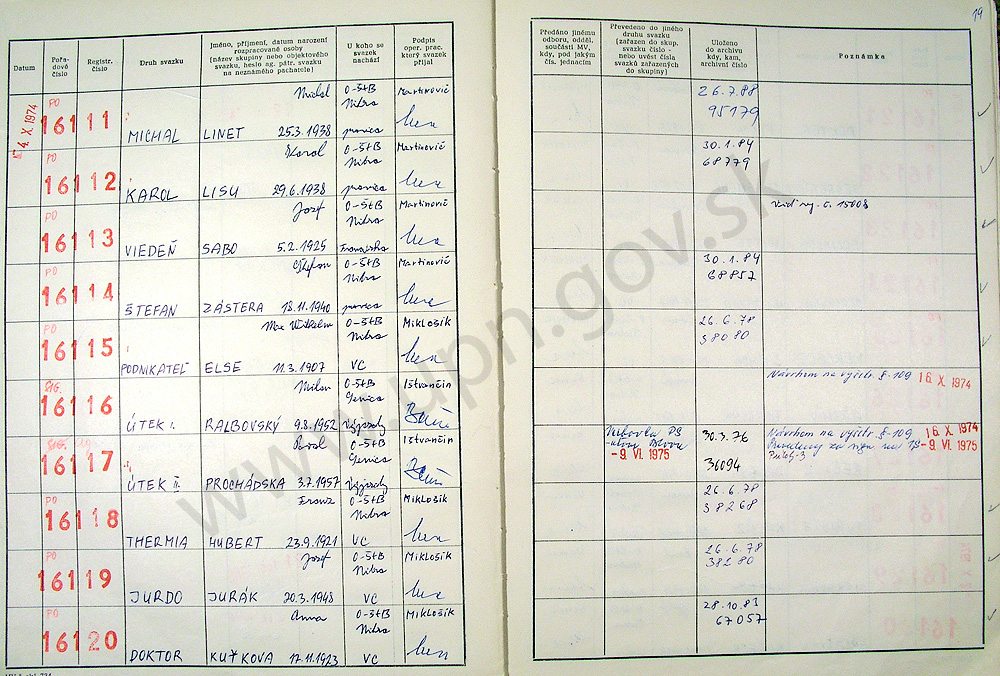 19
Datum
Pořa-
dové
číslo
Registr.
číslo
Druh svazku
Jméno, příjmení, datum narození
rozpracované osoby
(název skupiny nebo objektového
svazku, heslo ag. pátr. svazku
na neznámého pachatele)
U koho se
svazek
nachází
Podpis
oper. prac.
který svazek
přijal
Předáno jinému
odboru, odděl.
součásti MV,
kdy, pod jakým
čís. jednacím
Převedeno do jiného
druhu svazku
(zařazen do skup.
svazku číslo -
nebo uvést čísla
svazků zařazených
do skupiny)
Uloženo
do archivu
kdy, kam,
archivní číslo
Poznámka
4 X. 1974
PO
161 11
MICHAL
Michal
LINET 25.3.1938
0-ŠtB
Nitra
Martinovič
26.7.88
95179
PO
161 12
KAROL
Karol
LISU 29.6.1938
0-ŠtB
Nitra
Martinovič
30.1.84
68779
PO
161 13
VIEDEŇ
Jozef
SABO 5.2.1925
0-ŠtB
Nitra
Martinovič
PO
161 14
ŠTEFAN
Štefan
ZÁSTERA 18.11.1940
0-ŠtB
Nitra
Martinovič
30.1.84
68857
PO
161 15
PODNIKATEĽ
Max Wilhelm
ELSE 11.3.1907
0-ŠtB
Nitra
VC
Miklošik
26.6.78
38080
SIG.
161 16
ÚTEK I.
Milan
RALBOVSKÝ 9.8.1952
0-ŠtB
Senica
Istvančin
Návrhom na vyšetr. §-109
16. X. 1974
SIG.
161 17
ÚTEK II
PROCHÁDSKA 3.7.1957
0-ŠtB
Senica
Istvančin
-9. VI. 1975
30.3.76
36094
Návrhom na vyšetr. §-109
16 X. 1974
-9. VI. 1975
PO
161 18
THERMIA
Franz
HUBERT 23.9.1921
0-ŠtB
Nitra
VC
Miklošik
26.6.78
38268
PO
161 19
JURDO
Jozef
JURÁK 20.3.1948
0-ŠtB
Nitra
VC
Miklošik
26.6.78
38280
PO
161 20
DOKTOR
Anna
KUŤKOVA 17.11.1923
0-ŠtB
Nitra
VC
Miklošik
28.10.83
67057
www.upn.gov.sk